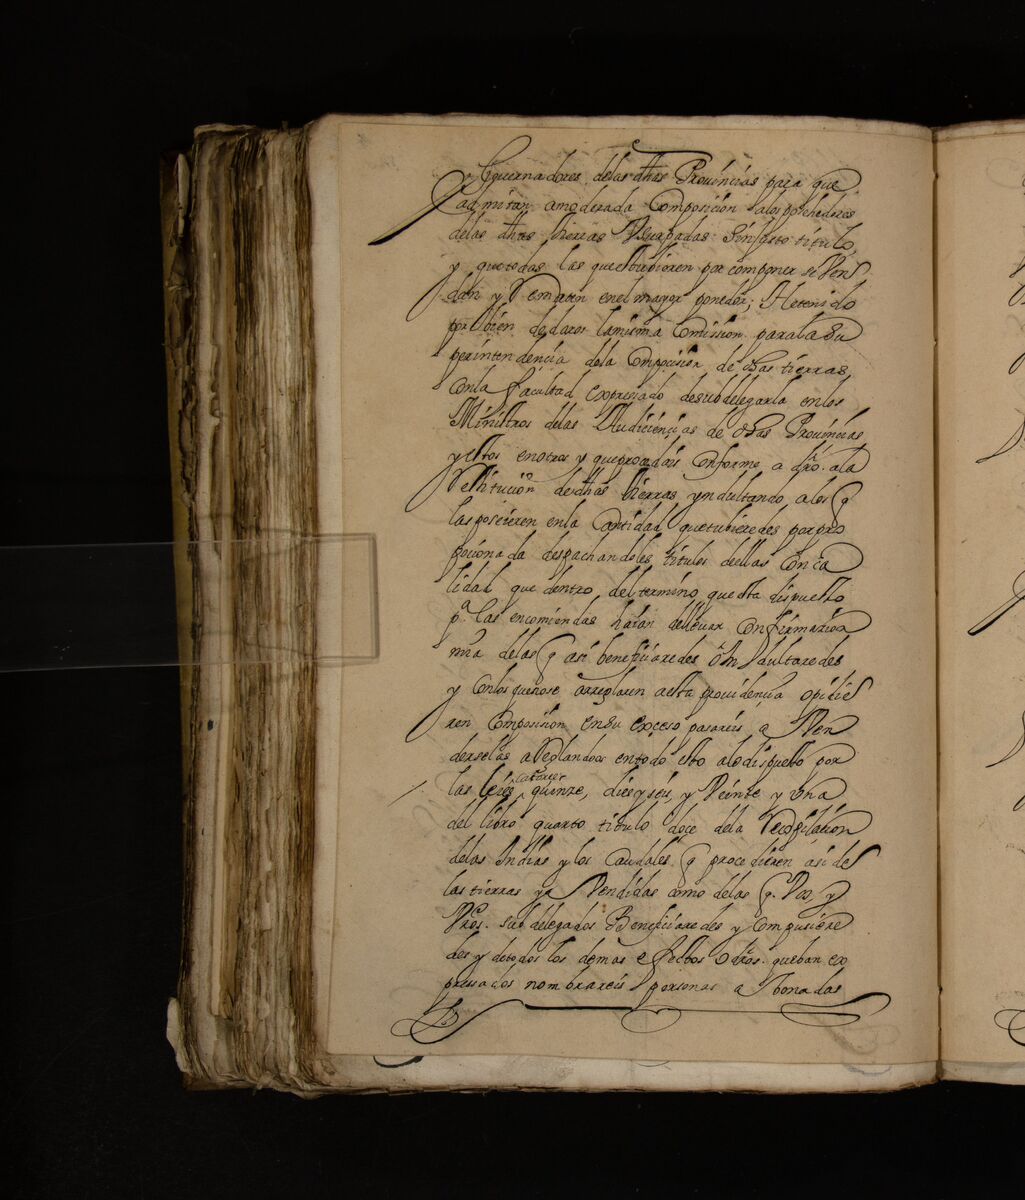 y Governadores delas dhas Provincias para que
admitan amoderada Composicion alos posehedores
delas dhas tierras Vsurpadas sin justo titulo
y quetodas las queestubieren por componer se Ven
dan y Rematen enel mayor ponedor; Hetenido
por bien dedaros lamisma Comission paralasu
perintendencia dela Composicion de esas tierras,
Conla facultad expresado desubdelegarla enlos
Ministros delas Audiencias de esas Provincias
y estos enotros y queprocedais Conforme a dro. ala
Restitucion desdhas tierras yndultando alos q
las poseieren enla Cantidad quetubieredes porpro
porcionada despachandoles titulos deellas Con ca
lidad que dentro deltermino que esta dispuesto
pa. las encomiendas haian dellevar Confirmacion
mia delas q asi beneficiaredes o Yndultaredes
y Conlos quenose arreglaren aesta providencia o pidie
ren Composicion ensu exceso pasareis a Ven
derselas aReglandoos entodo esto alodispuesto por
las leies catorce quinze, diesyseis, y Veinte y una
del libro quarto titulo doce dela Recopilacion
delas Indias y los Caudales q procedieren asi des
las tierras ya Vendidas como delas q. Vos, y
Vros. subdelegados Beneficiaredes y Compusiere
des y detodos los demas efectos o dros. quevan ex
pressados nombrareis personas aBonadas